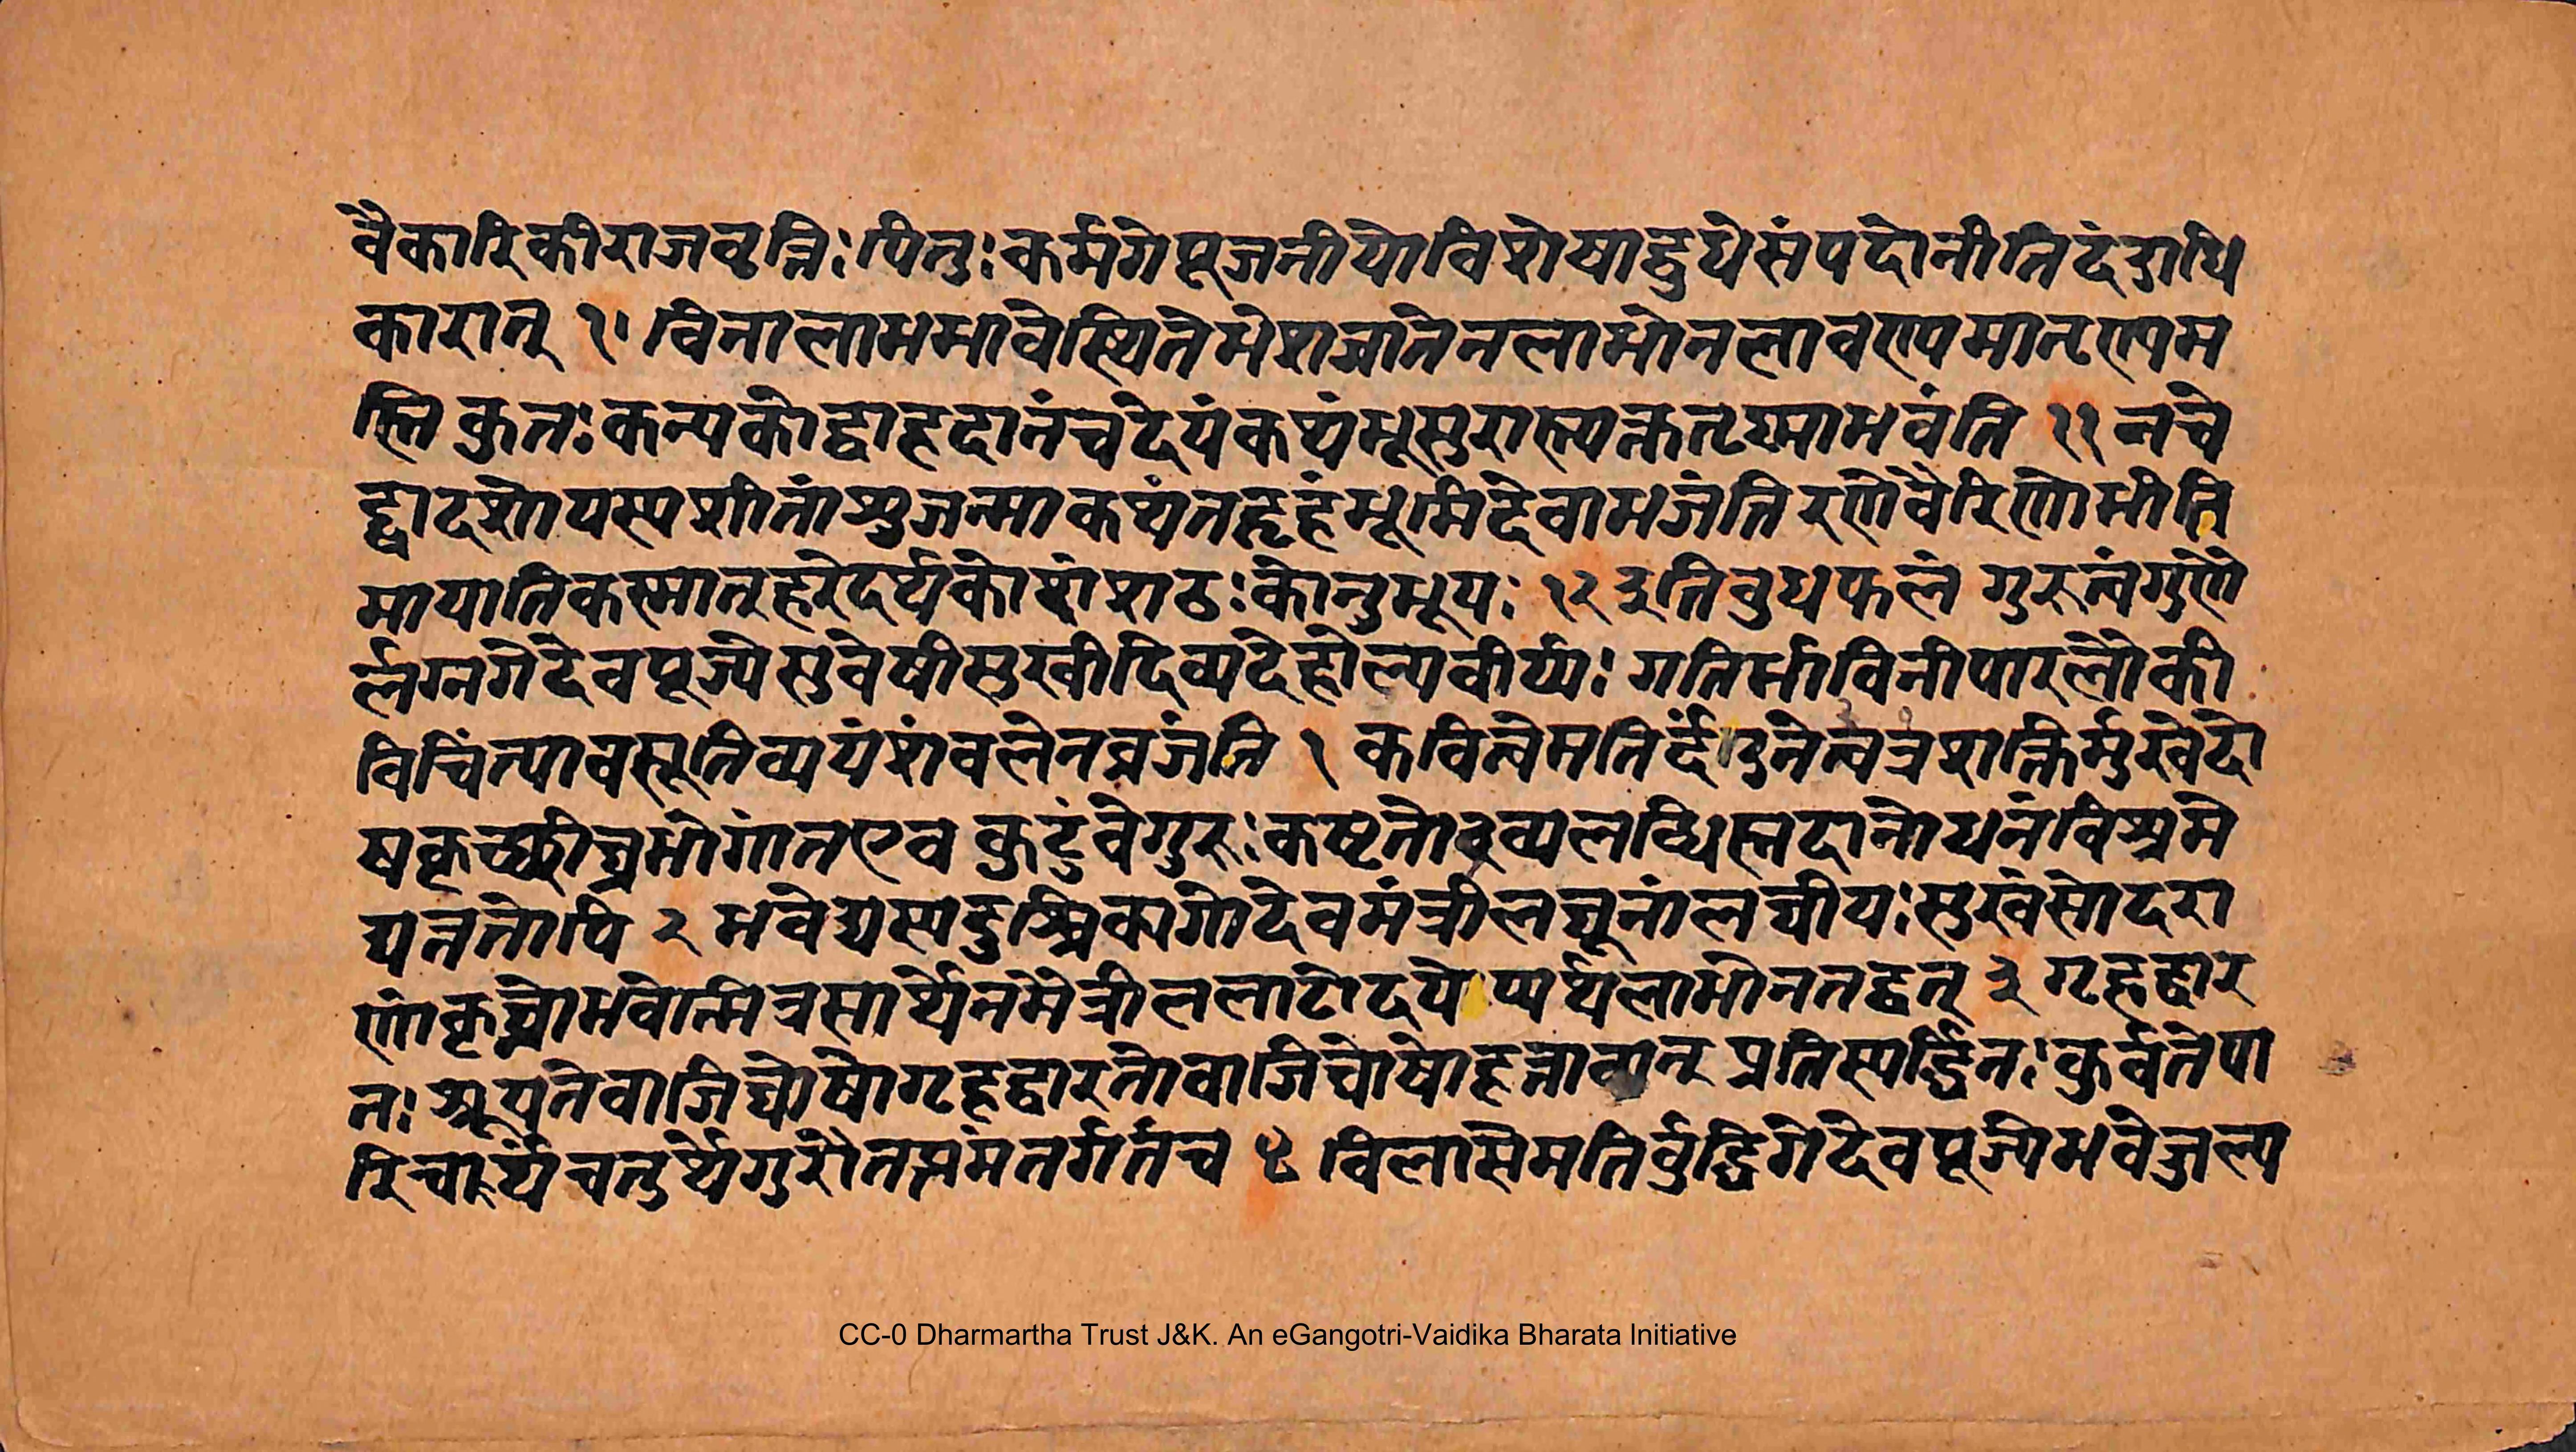 वैकारिकीराजवृत्तिः पितुः कर्मगेपूजनीयोविशेषाद्बुधेसंपदोनीतिदंडाधि
कारात् १। विनालाभभावेस्थितेभेशजातेनलाभोनलावण्यमानृण्यम
स्ति कुतः कन्यकोद्वाहदानंचदेयंकथंभूसुरास्त्यक्ततृष्णाभवंति ११ नचे
द्द्वादशेयस्यशीतांशुजन्माकथंतद्गृहंभूमिदेवाभजंतिरणेवैरिणोभीति
मायातिकस्मात्हरेदर्थकोशंशठः कोनुभूयः १२ इतिबुधफलं गुरुत्वंगुणै
र्लग्नगेदेवपूज्येसुवेषीसुखीदिव्यदेहोल्पवीर्य्यः गतिर्भाविनीपारलौकी
विचिंत्यावसूतिव्ययंशंबलेनव्रजंति १ कवित्वेमतिर्दंडनेतृत्वशक्तिर्मुखेदो
षकृच्छीघ्रभोगांतएव कुटुंबेगुरुः कष्टतोद्रव्यलब्धिस्सदानोधनंविश्रमे
द्यत्नतोपि २ भवेद्यस्यदुश्चिक्यगोदेवमंत्रीलघूनांलघीयः सुखंसोदरा
णांकृतघ्नोभवेन्मित्रसार्थेनमैत्रीललाटोदयेप्यर्थलाभोनतद्वत् ३ गृहद्वार
तः श्रूयतेवाजिघोषोगृहद्वारतोवाजिघोषाहृत्तावान् प्रतिस्पर्द्धिनः कुर्वतेपा
रिचार्यंचतुर्थेगुरौतप्तमंतर्गतंच ४ विलासेमतिर्बुद्धिगेदेवपूज्येभवेज्जल्प
CC-0 Dharmartha Trust J&K. An eGangotri-Vaidika Bharata Initiative